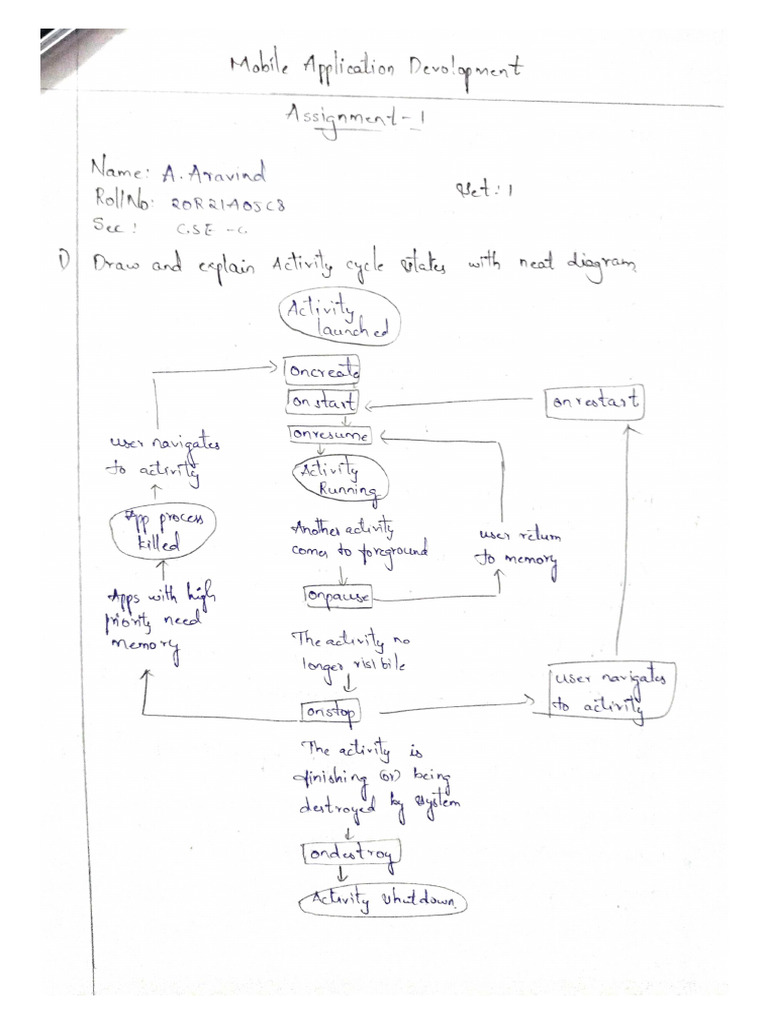 Mobile Application Devolopment
Assignment-1
Name: A. Aravind
Set: 1
Roll No: 20R21A05C8
Sec: CSE-C.
1) Draw and explain Activity cycle states with neat diagram
Activity
launched
oncreate
onstart
onrestart
onresume
user navigates
to activity
Activity
Running
App process
killed
Another activity
comes to foreground
user return
to memory
Apps with high
priority need
memory
onpause
The activity no
longer visibile
user navigates
to activity
onstop
The activity is
finishing (or) being
destroyed by system
ondestroy
Activity shutdown.